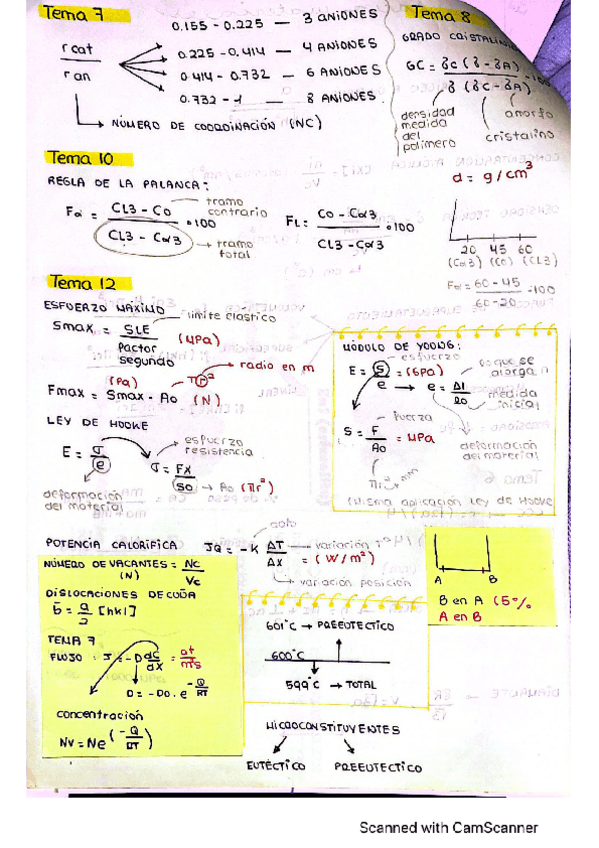 Tema 7
r cat
r an
0.155 - 0.225 — 3 ANIONES
0.225 - 0.414 — 4 ANIONES
0.414 - 0.732 — 6 ANIONES
0.732 - 1 — 8 ANIONES
NÚMERO DE COORDINACIÓN (NC)
Tema 8
GRADO CRISTALIN
GC = δc (δ - δA) •100
δ (δc - δA)
densidad
medida
del
polímero
amorfo
cristalino
d = g/cm³
Tema 10
REGLA DE LA PALANCA:
Fα = CL3 - Co •100
CL3 - Cα3
tramo
contrario
tramo
total
FL: Co - Cα3 •100
CL3 - Cα3
20 45 60
(Cα3) (Co) (CL3)
Fα = 60 - 45 •100
60 - 20
Tema 12
ESFUERZO MÁXIMO
límite elástico
Smax = SLE (MPa)
Factor
segundo
πr² → radio en m
(Pa)
Fmax = Smax · Ao (N)
LEY DE HOOKE
E = σ
e
deformación
del material
esfuerzo
resistencia
σ = FX
So → Ao (πr²)
MÓDULO DE YOUNG:
esfuerzo
E = S = (GPa)
e
lo que se
alarga
e = Δl
lo
medida
inicial
fuerza
S = F = MPa
Ao
πr²
deformación
del material
(Misma aplicación Ley de Hooke
POTENCIA CALORÍFICA
JQ = -K ΔT = (W/m²)
ΔX
variación Tª
variación posición
NÚMERO DE VACANTES = Nc
(N) Vc
DISLOCACIONES DE CUÑA
b = a [hkl]
2
TEMA 7
FLUJO: J = -D dC = at
dX m²s
D = -Do · e^(-Q/RT)
concentración
Nv = Ne^(-Q/RT)
A B
B en A (5%
A en B
601°C → PREEUTECTICO
600°C
599°C → TOTAL
MICROCONSTITUYENTES
EUTÉCTICO PREEUTECTICO
Scanned with CamScanner